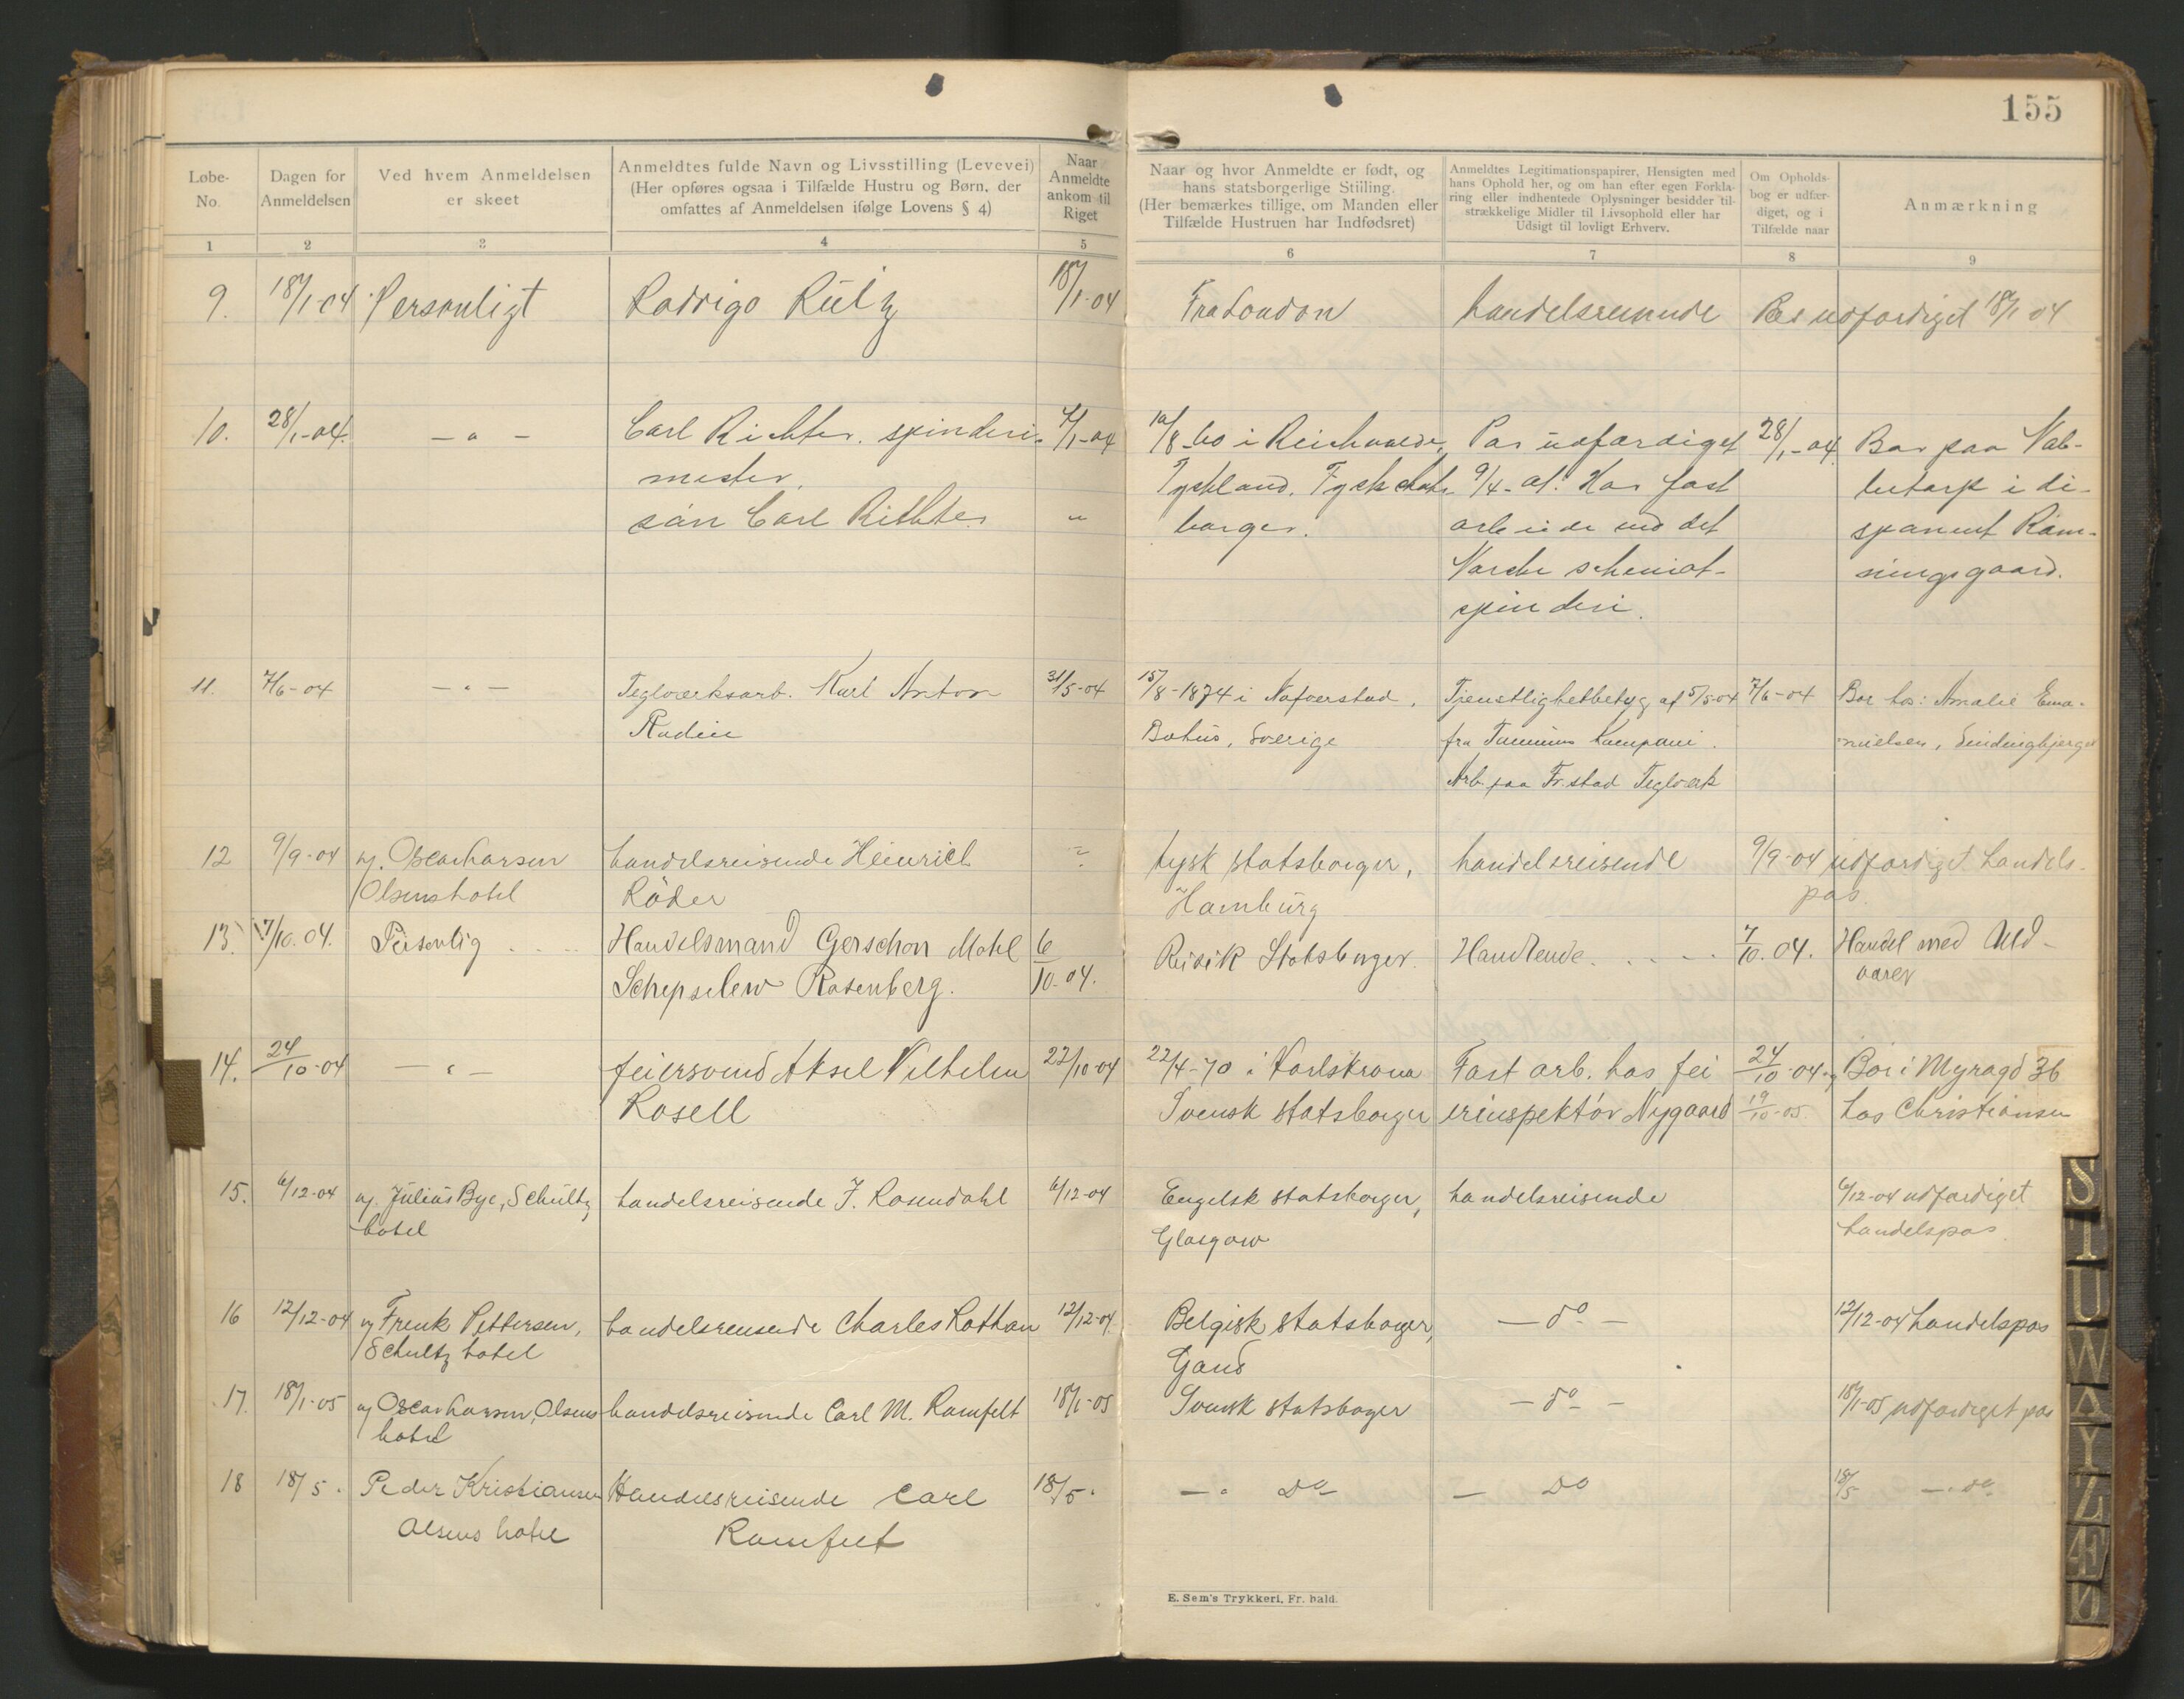 155
Løbe-
No.
Dagen for
Anmeldelsen
Ved hvem Anmeldelsen
er skeet
Anmeldtes fulde Navn og Livsstilling (Levevei)
(Her opføres ogsaa i Tilfælde Hustru og Børn, der
omfattes af Anmeldelsen ifølge Lovens § 4)
Naar
Anmeldte
ankom til
Riget
Naar og hvor Anmeldte er født, og
hans statsborgerlige Stilling.
(Her bemærkes tillige, om Manden eller
Tilfælde Hustruen har Indfødsret)
Anmeldtes Legitimationspapirer, Hensigten med
hans Ophold her, og om han efter egen Forkla-
ring eller indhentede Oplysninger besidder til-
strækkelige Midler til Livsophold eller har
Udsigt til lovligt Erhverv.
Om Opholds-
bog er udfær-
diget, og i
Tilfælde naar
Anmærkning
1 2 3 4 5 6 7 8 9
9. 18/1-04 Personligt Rodrigo 18/1-04 Fra London handelsreisende Pas udfærdiget 18/1 04
10. 28/1-04. — " — Carl Richter. spinderi- 4/1-04 10/8-60 i Pas udfærdiget 28/1-04. Bor paa Nab-
mester. Tyskland. Tysk stats- 9/4-01. Har fast betorp i di-
sön Carl Richter " borger. arbeide ved det sponent Ram-
Norske schoniot- singsgaard.
spinderi.
11. 7/6-04 — " — Teglværksarb. Karl Anton 31/5-04 15/8-1874 i Nafverstad, Tjenstlighetbetyg af 5/5-04 7/6-04 Bor hos: Amalie Ema-
Rudin Bohus, Sverige fra Tanums Kompani. nuelsen,
Arb. paa Fr.stad Teglværk
12 9/9-04 v. Oscar Larsen handelsreisende Heinrich ? tysk statsborger, handelsreisende 9/9-04 udfærdiget handels-
Olsens hotel Röder Hamburg pas.
13. 7/10.04. Personlig . . . . Handelsmand Gerschon Motel 6/10-04. Rusisk Statsborger. Handlende. . . . . 7/10.04. Handel med Uld-
Schepselew Rosenberg. varer
14. 24/10-04 — " — feiersvend Aksel Vilhelm 22/10-04 22/4-70 i Karlskrona Fast arb. hos fei 24/10-04 og Bor i Myragd 36
Rosell Svensk statsborger erinspektör Nygaard 19/10-05. hos Christiansen
15. 6/12-04 v. Julius Bye, Schultz handelsreisende J. Rosendahl 6/12-04 Engelsk statsborger, handelsreisende 6/12-04 udfærdiget
hotel Glasgow handelspas
16 12/12-04 v. Frenk Pettersen, handelsreisende Charles Rothan 12/12-04. Belgisk statsborger, — do — 12/12-04 handelspas
Schultz hotel Gand
17. 18/1-05 v. Oscar Larsen, Olsens handelsreisende Carl M. Ramfelt 18/1-05 Svensk statsborger — do — 18/1-05 udfærdiget pas
hotel
18 18/5. Peder Kristiansen Handelsreisende Carl 18/5. — " Do — Do 18/5 — " do
Olsens hotel Ramfelt
E. Sem's Trykkeri, Fr. hald.
S
T
U
W
Y
Z
Æ
Ø